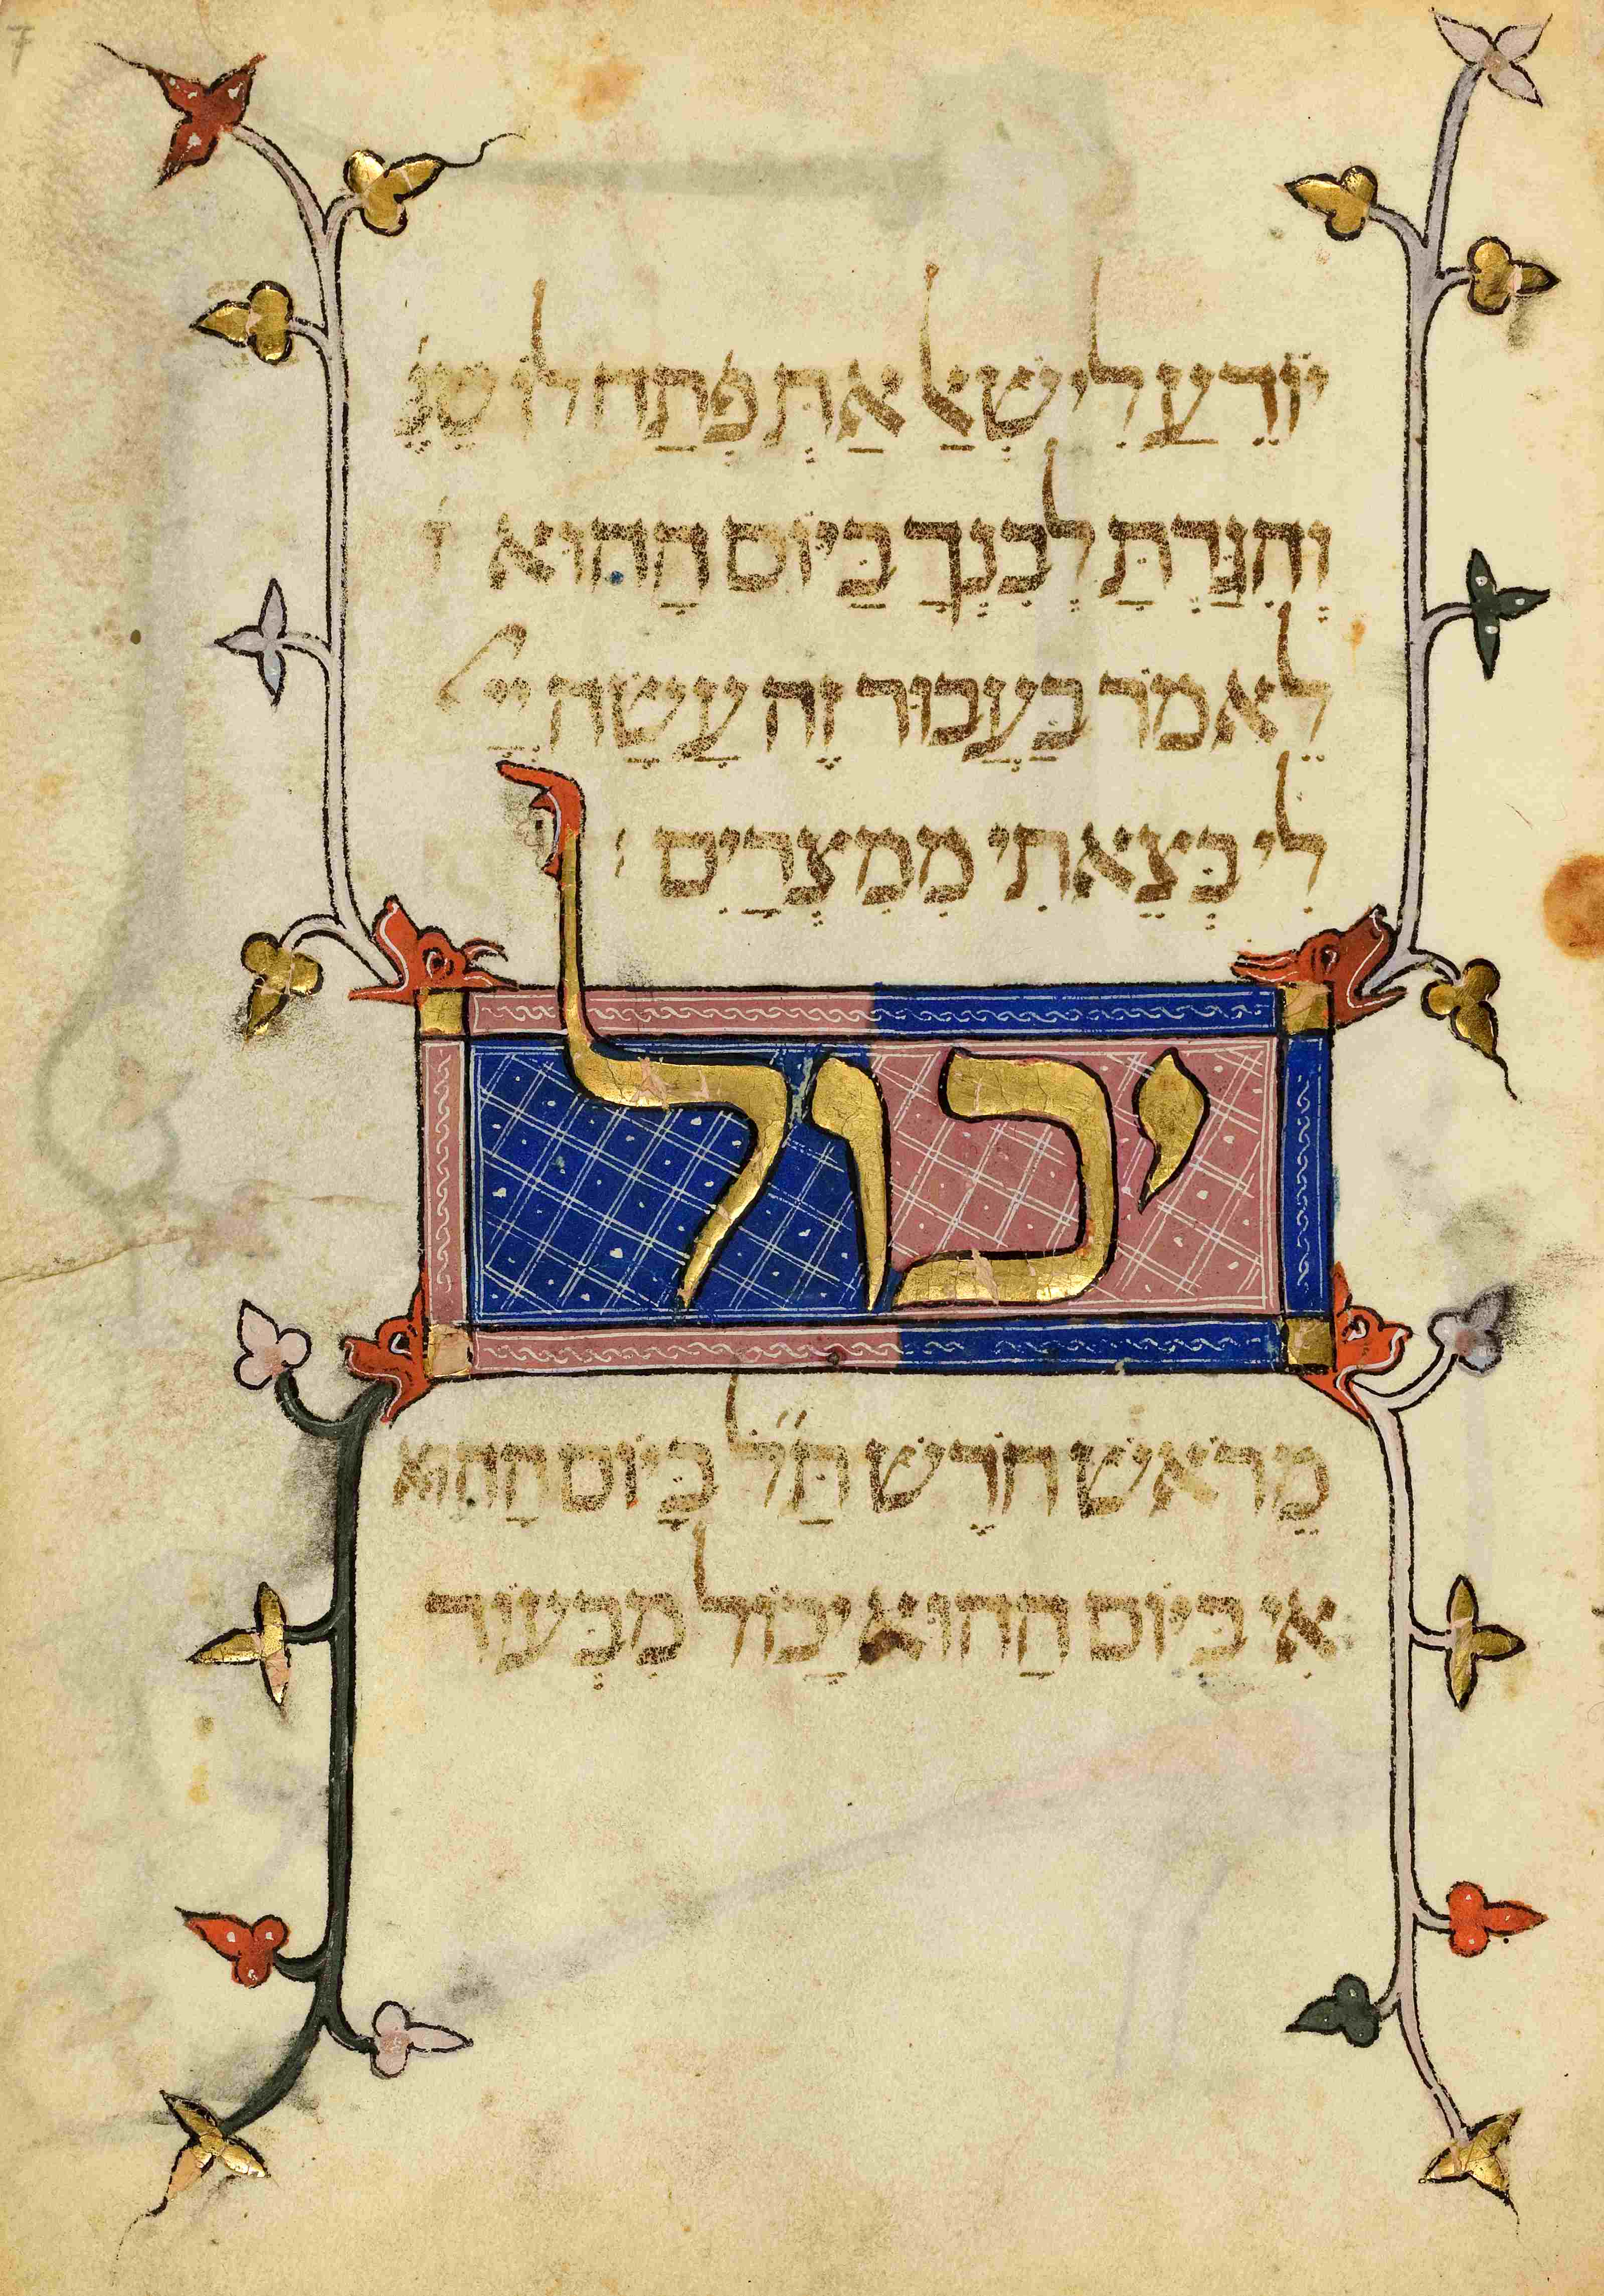 יוֹדֵעַ לִישְׁאַל אַתְּ פְּתַח לוֹ שֶׁנֶּ֗
וְהִגַּדְתָּ לְבִנְךָ בַּיּוֹם הַהוּא
לֵאמֹר בַּעֲבוּר זֶה עָשָׂה יְיָ
לִי בְּצֵאתִי מִמִּצְרַיִם :
יכול
מֵרֹאשׁ חֹדֶשׁ תַּ״לֹ בַּיּוֹם הַהוּא
אִי בַּיּוֹם הַהוּא יָכוֹל מִבְּעוֹד